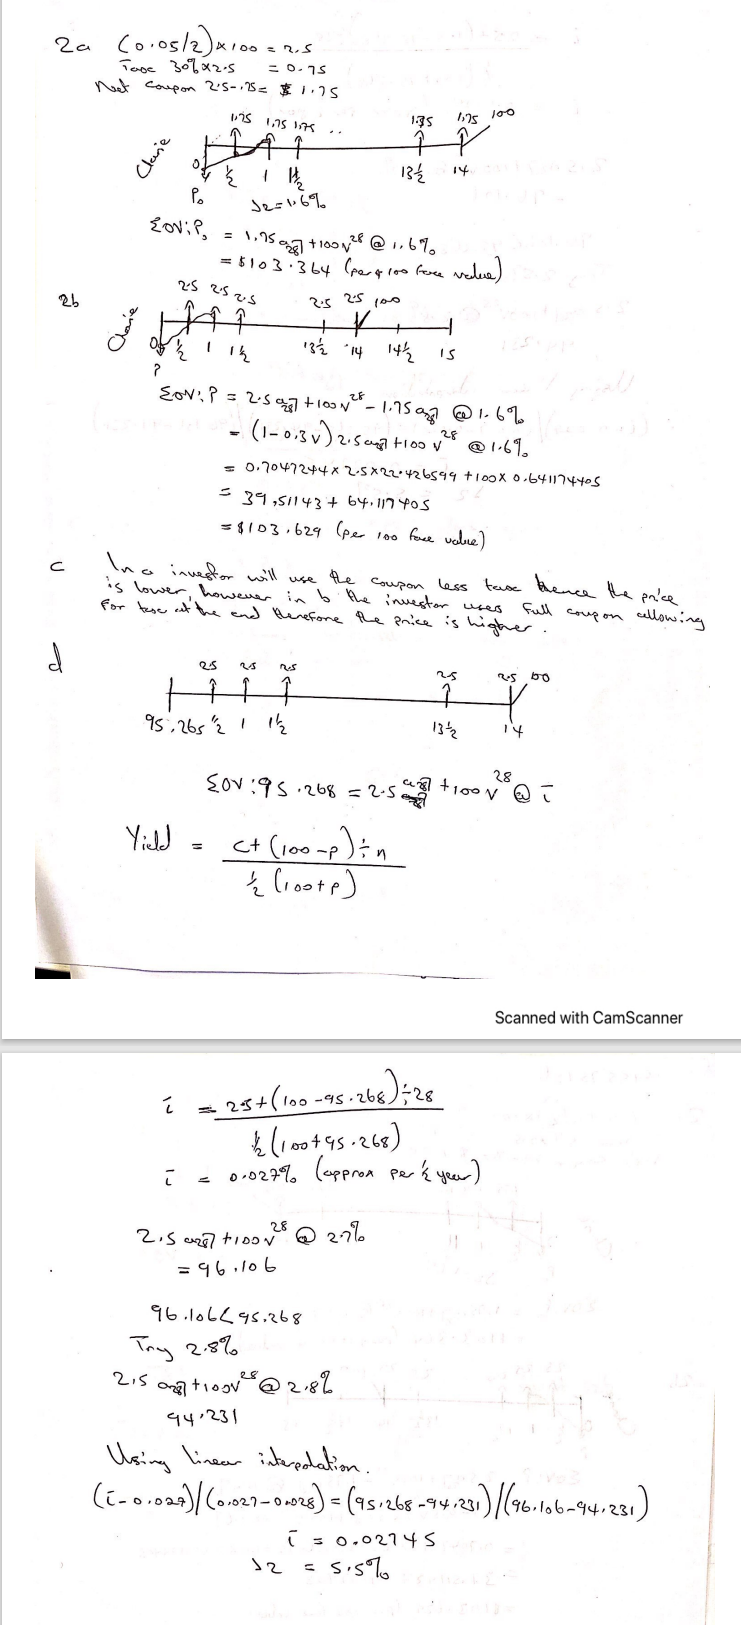 2a (0.05/2)x100 = 2.5
Taxe 30% x 2.5 = 0.75
Net Coupon 2.5-.75 = $ 1.75
1.75 1.75 1.75 .. 1.75 1.75 100
Claire
0 ½ 1 1½ 13½ 14
P₀ J2=1.6%
EOV: P₀ = 1.75 a28⌉ + 100v^28 @ 1.6%
= $103.364 (per $100 face value)
2b
2.5 2.5 2.5 2.5 2.5 100
Claire
0 ½ 1 1½ 13½ 14 14½ 15
P
EOV: P = 2.5 a28⌉ + 100v^28 - 1.75 a28⌉ @ 1.6%
= (1-0.3v) 2.5 a28⌉ + 100 v^28 @ 1.6%
= 0.7047244 x 2.5 x 22.426599 + 100 x 0.641174405
= 39.51143 + 64.117405
= $103.629 (per 100 face value)
c In a investor will use the coupon less taxe thence the price
is lower, however in b the investor uses full coupon allowing
for taxe at the end therefore the price is higher.
d
2.5 2.5 2.5 2.5 2.5 100
95.265 ½ 1 1½ 13½ 14
EOV: 95.268 = 2.5 a28⌉ + 100 v^28 @ i
Yield = C+(100-p)÷n
½(100+p)
Scanned with CamScanner
i = 2.5+(100-95.268)÷28
½(100+95.268)
i = 0.027% (approx per ½ year)
2.5 a28⌉ + 100v^28 @ 2.7%
= 96.106
96.106<95.268
Try 2.8%
2.5 a28⌉ + 100v^28 @ 2.8%
94.231
Using linear interpolation.
(i-0.027)/(0.027-0.028) = (95.268-94.231)/(96.106-94.231)
i = 0.02745
J2 = 5.5%